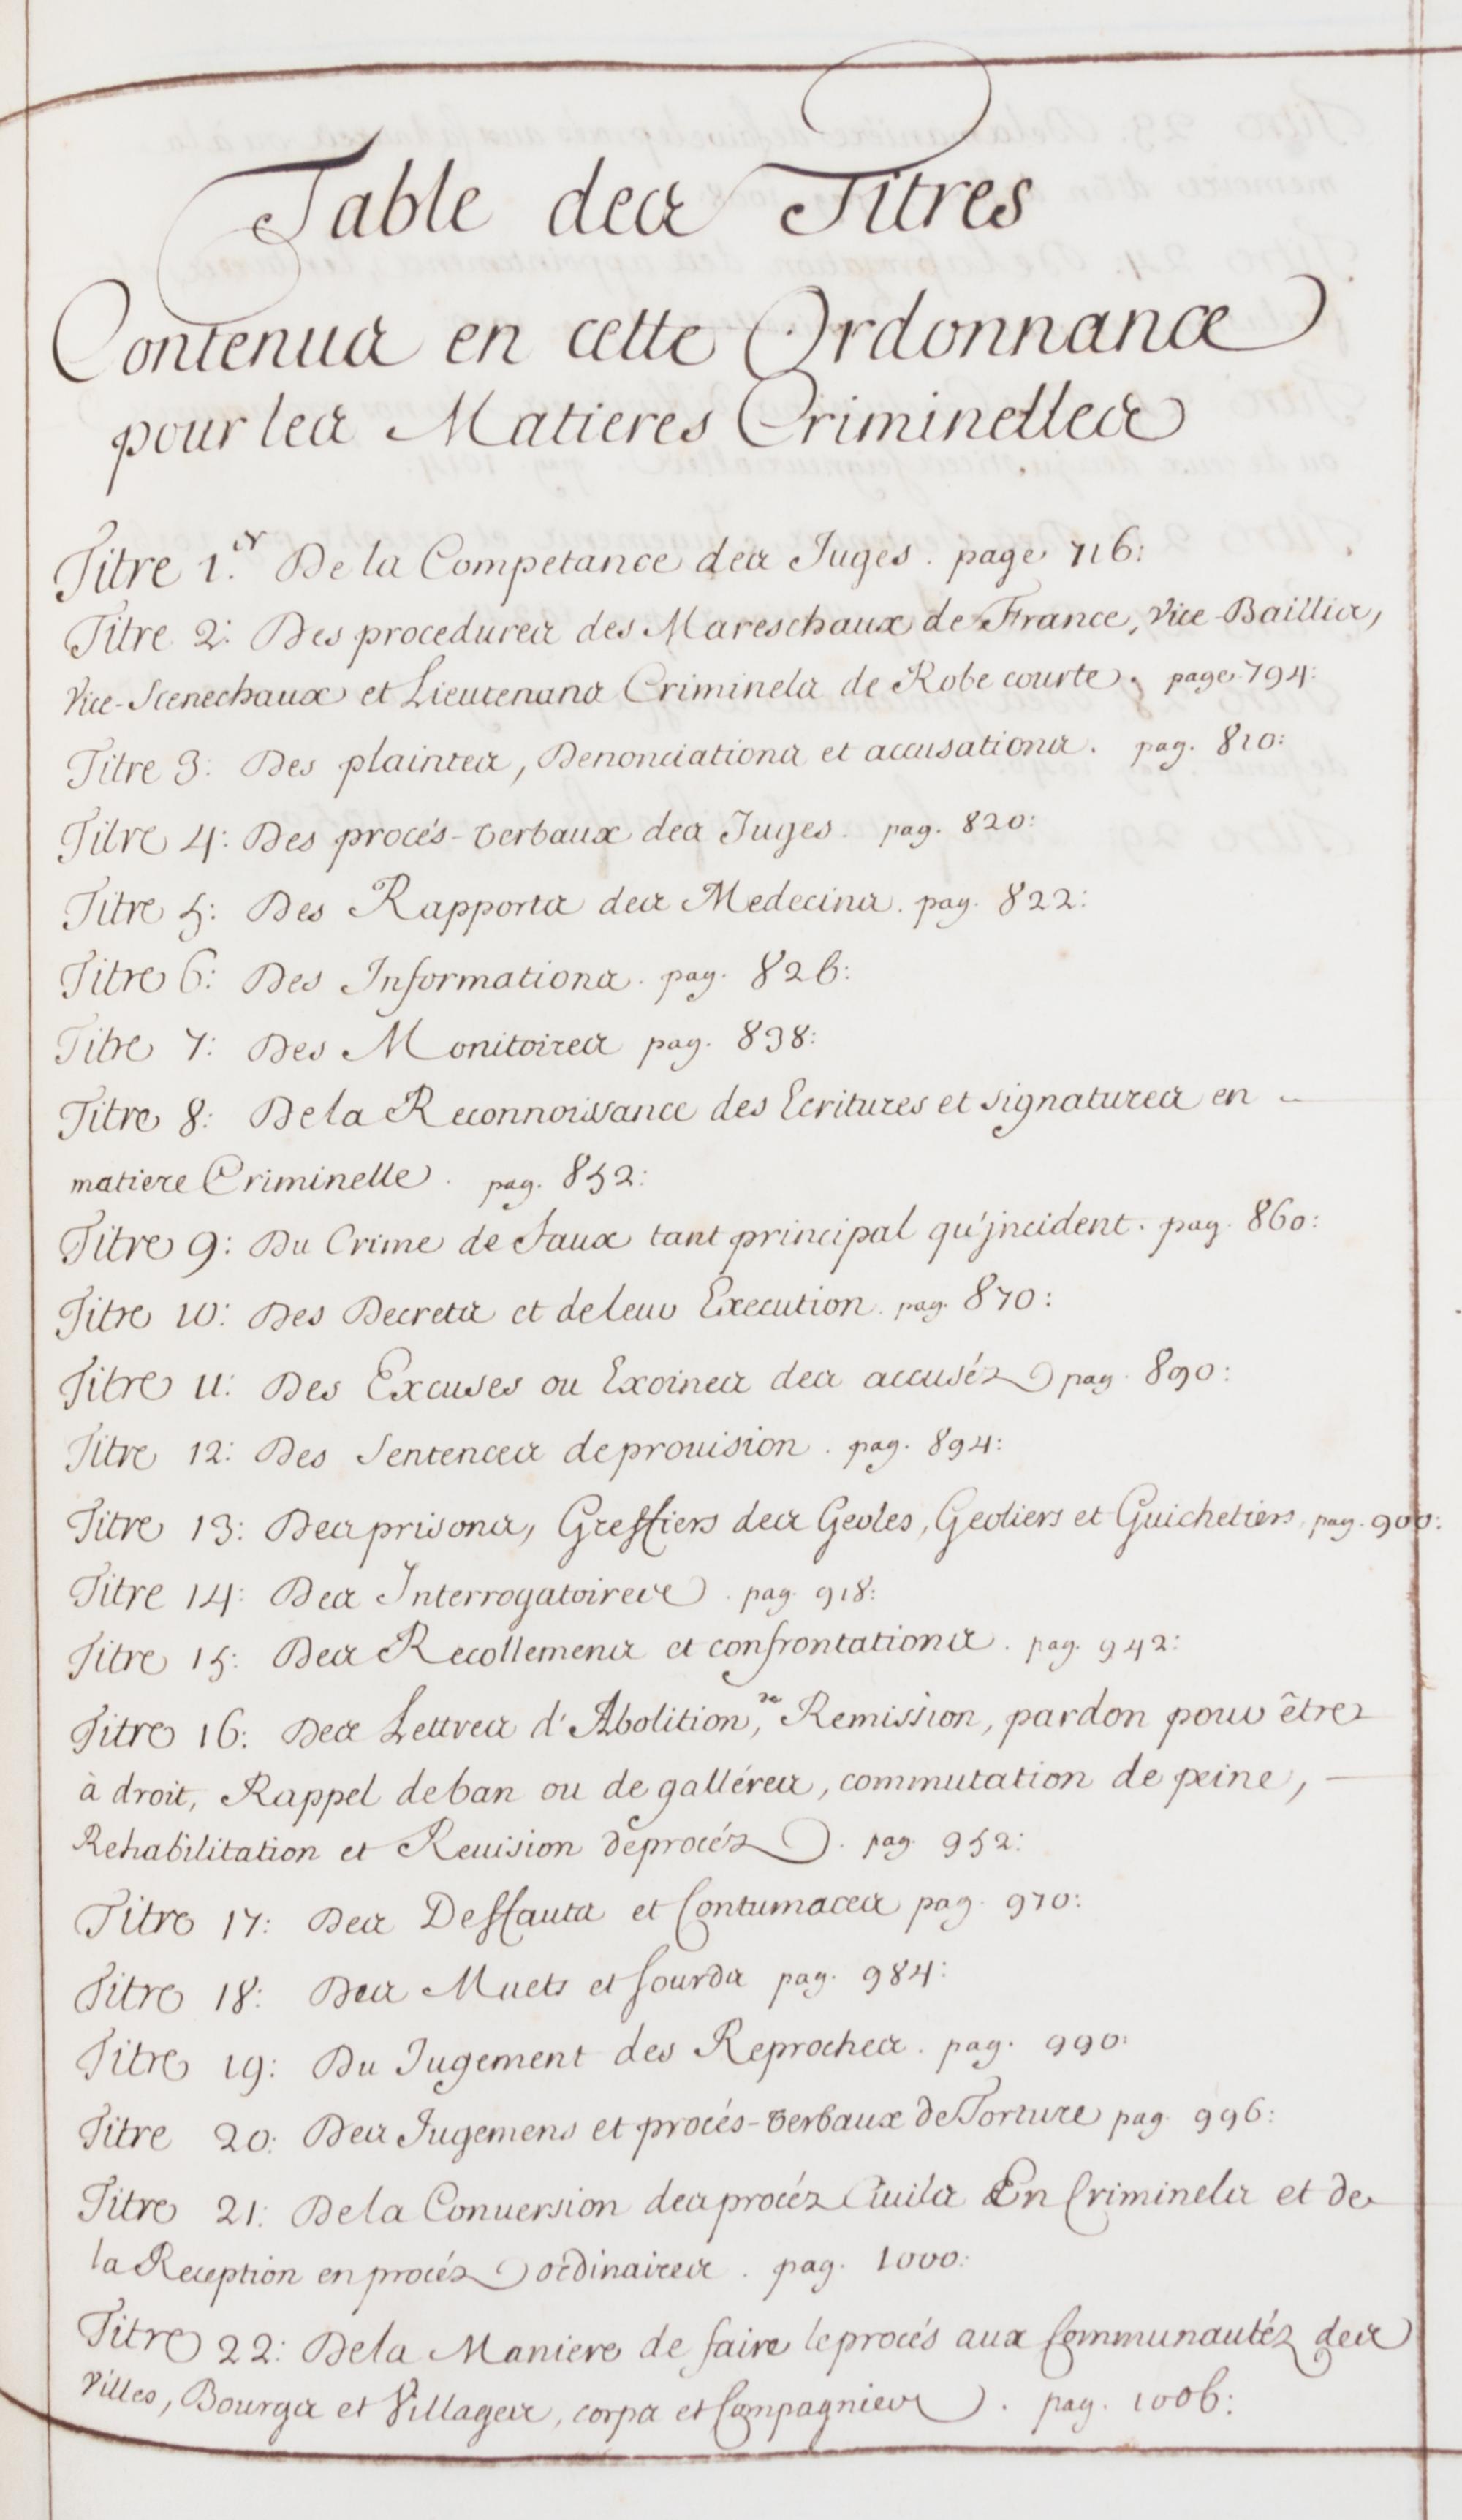 Table des Titres
Contenus en cette Ordonnance
pour les Matieres Criminelles
Titre 1.er De la Competance des Juges. page 716:
Titre 2: Des procedures des Mareschaux de France, Vice-Baillis,
Vice-Scenechaux et Lieutenans Criminels de Robe courte. page 794:
Titre 3: Des plaintes, Denonciations et accusations. pag. 810:
Titre 4: Des procés-verbaux des Juges. pag. 820:
Titre 5: Des Rapports des Medecins. pag. 822:
Titre 6: Des Informations. pag. 826:
Titre 7: Des Monitoires pag. 838:
Titre 8: De la Reconnoissance des Ecritures et signatures en
matiere Criminelle. pag. 852:
Titre 9: Du Crime de Faux tant principal qu'jncident. pag. 860:
Titre 10: Des Decrets et de leur Execution. pag. 870:
Titre 11: Des Excuses ou Exoines des accuséz pag. 890:
Titre 12: Des Sentences de prouision. pag. 894:
Titre 13: Des prisons, Greffiers des Geoles, Geoliers et Guichetiers. pag. 900:
Titre 14: Des Interrogatoires. pag. 918:
Titre 15: Des Recollemens et confrontations. pag. 942:
Titre 16: Des Lettres d'Abolition, de Remission, pardon pour être
à droit, Rappel de ban ou de galléres, commutation de peine,
Rehabilitation et Reuision de procéz. pag. 952:
Titre 17: Des Deffauts et Contumaces pag. 970:
Titre 18: Des Muets et Sourds pag. 984:
Titre 19: Du Jugement des Reproches. pag. 990:
Titre 20: Des Jugemens et procés-verbaux de Torture pag. 996:
Titre 21: De la Conuersion des procéz Ciuils En Criminels et de
la Reception en procéz ordinaires. pag. 1000:
Titre 22: De la Maniere de faire le procés aux Communautéz des
Villes, Bourgs et Villages, corps et Compagnies. pag. 1006: